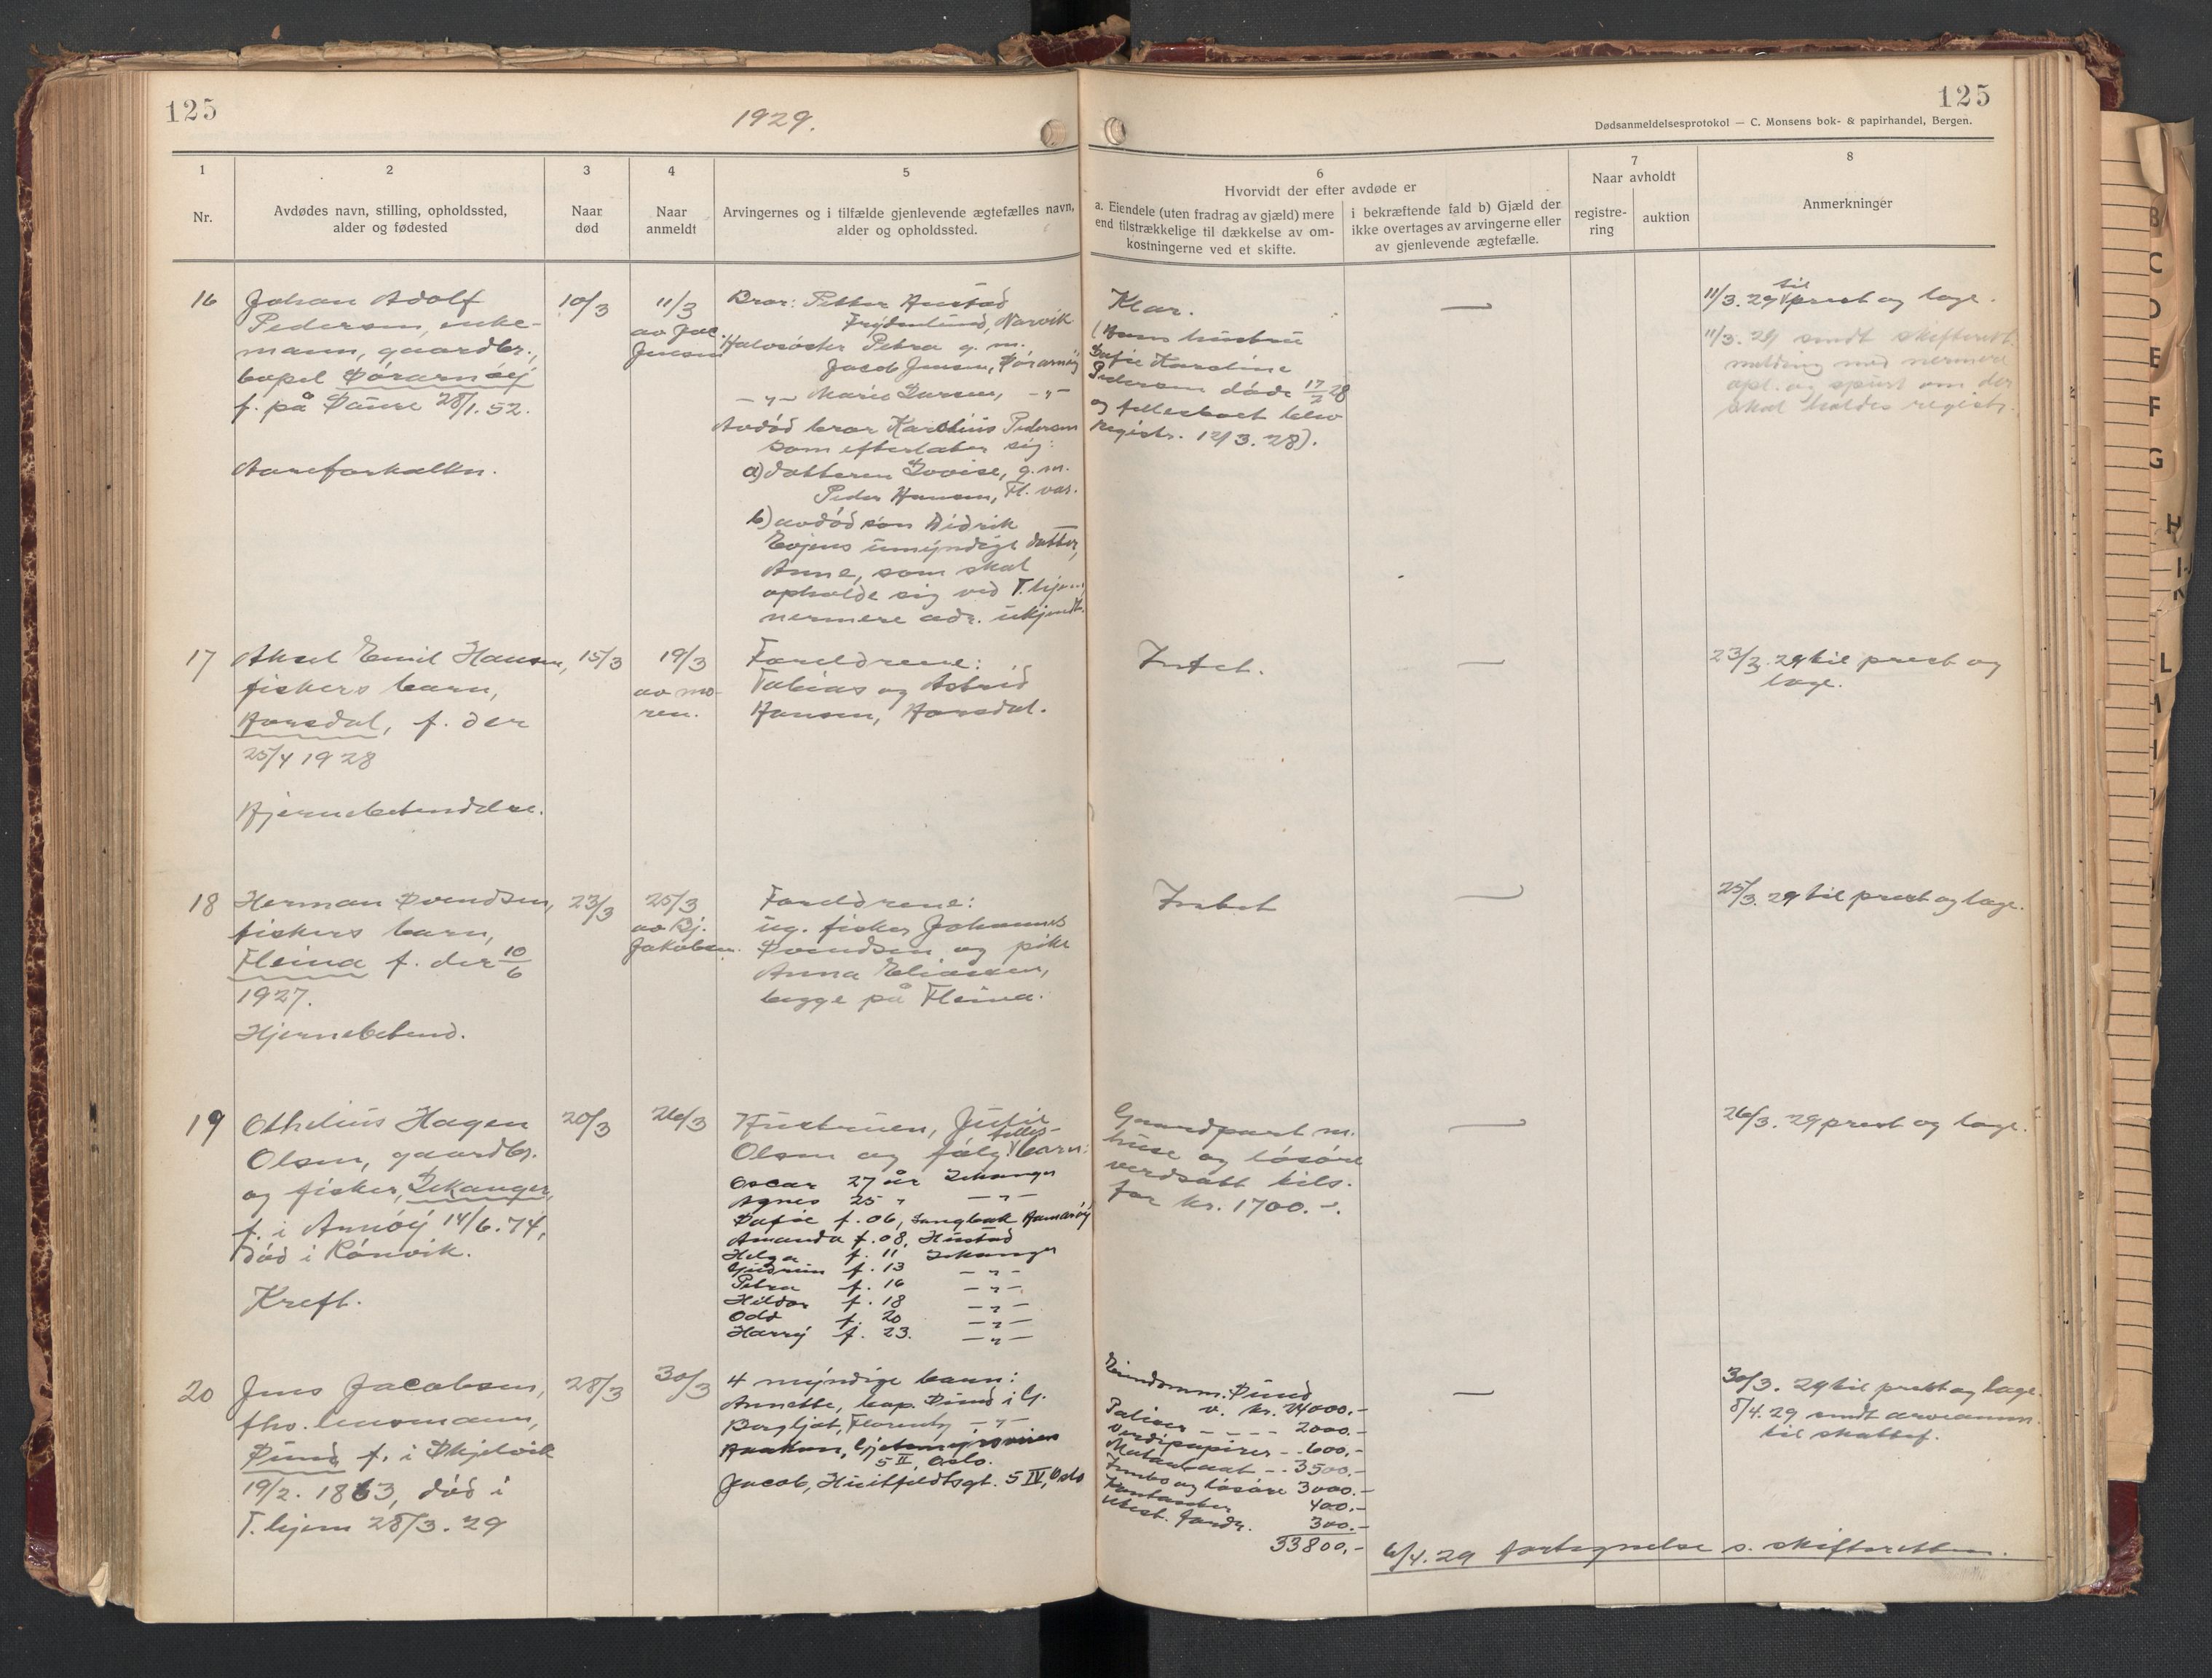 125
1929.
125
Dødsanmeldelsesprotokol — C. Monsens bok- & papirhandel, Bergen.
1
Nr.
2
Avdødes navn, stilling, opholdssted,
alder og fødested
3
Naar
død
4
Naar
anmeldt
5
Arvingernes og i tilfælde gjenlevende ægtefælles navn,
alder og opholdssted.
6
Hvorvidt der efter avdøde er
a. Eiendele (uten fradrag av gjæld) mere
end tilstrækkelige til dækkelse av om-
kostningerne ved et skifte.
i bekræftende fald b) Gjæld der
ikke overtages av arvingerne eller
av gjenlevende ægtefælle.
7
Naar avholdt
registre-
ring
auktion
8
Anmerkninger
16
Johan Adolf
Pedersen, enke-
mann, gaardbr.,
bopel Sørarnøy
f. på Saure 28/1. 52.
Aareforkalkn.
10/3
11/3
av Jac.
Jensen
Bror: Petter Hustad
Frydenlund, Narvik
Halvsøster Petra g. m.
Jacob Jensen, Sørarnøy
—"— Marie Larsen, —"—
Avdød bror Karolius Pedersen
som efterlater sig:
a) datteren Lovise, g. m.
Peder Hansen, Fl. vær.
b) avdød søn Didrik
Evjens umyndige datter,
Anne, som skal
opholde sig ved T. hjem,
nermere adr. ukjendt.
Klar.
(Hans hustru
Sofie Karoline
Pedersen døde 17/2 28
og fellesboet blev
registr. 12/3. 28).
—
11/3. 29 til prest og lage.
11/3. 29 sendt skifterett.
melding med nermere
opl. og spurt om der
skal holdes registr.
17
Aksel Emil Hansen,
fiskers barn,
Horsdal, f. der
25/4 1928
Hjernebetendelse.
15/3
19/3
av mo-
ren.
Foreldrene:
Tobias og Astrid
Hansen, Horsdal.
Intet.
—
23/3. 29 til prest og
lage.
18
Herman Svendsen,
fiskers barn,
Fleina f. der 10/6
1927.
Hjernebetend.
23/3
25/3
av Bj.
Jakobsen.
Foreldrene:
ug. fisker Johannes
Svendsen og pike
Anna Eliassen,
begge på Fleina.
Intet
—
25/3. 29 til prest og lage.
19
Othelius Hagen
Olsen, gaardbr.
og fisker, Lekanger,
f. i Arnøy 14/6. 74,
død i Rønvik.
Kreft.
20/3
26/3
Hustruen, Julie
Olsen og følg. felles-barn:
Oscar 27 år Lekanger
Agnes 25 " —"—
Sofie f. 06, Langbak Hamarøy
Amanda f. 08, Hustad
Helga f. 11 Lekanger
Gudrun f. 13 —"—
Petra f. 16 —"—
Hildor f. 18 —"—
Odd f. 20 —"—
Harry f. 23. —"—
Gaardpart m.
huse og løsøre
verdsatt tils.
for kr. 1700.-.
—
26/3. 29 prest og lage.
20
Jens Jacobsen,
fhv. lensmann,
Sund f. i Skjelvik
19/2. 1863, død i
T. hjem 28/3. 29
28/3
30/3
4 myndige barn:
Annette, bop. Sund i G.
Bergljot, —"—
Haakon, Gjetemyrsveien
5 II, Oslo.
Jacob, Huitfeldtsgt. 5 IV, Oslo
Eiendomm. Sund
v. kr. 24000.-
Poliser - - - - 2000.-
Verdipapirer - - 600.-
Motorbaat - - 3500.-
Innbo og løsøre 3000.-
Kontanter 400.-
Utest. fordr. 300.-
33800,-
—
30/3. 29 til prest og lage.
8/4. 29 sendt arveanm.
til skattef.
6/4. 29 fortegnelse s. skifteretten.
B
C
D
E
F
G
H
L